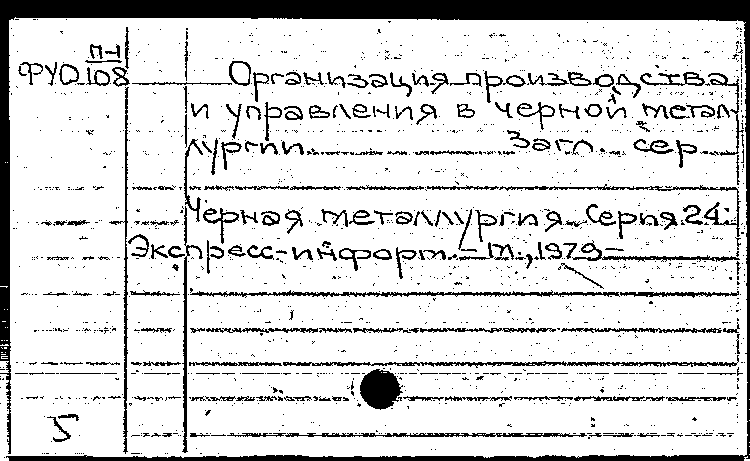 П-1
ФУО108
Организация производства
и управления в черной метал-
лургии. Загл. сер.
Черная металлургия. Серия 24:
Экспресс-информ. – М., 1979 –
5